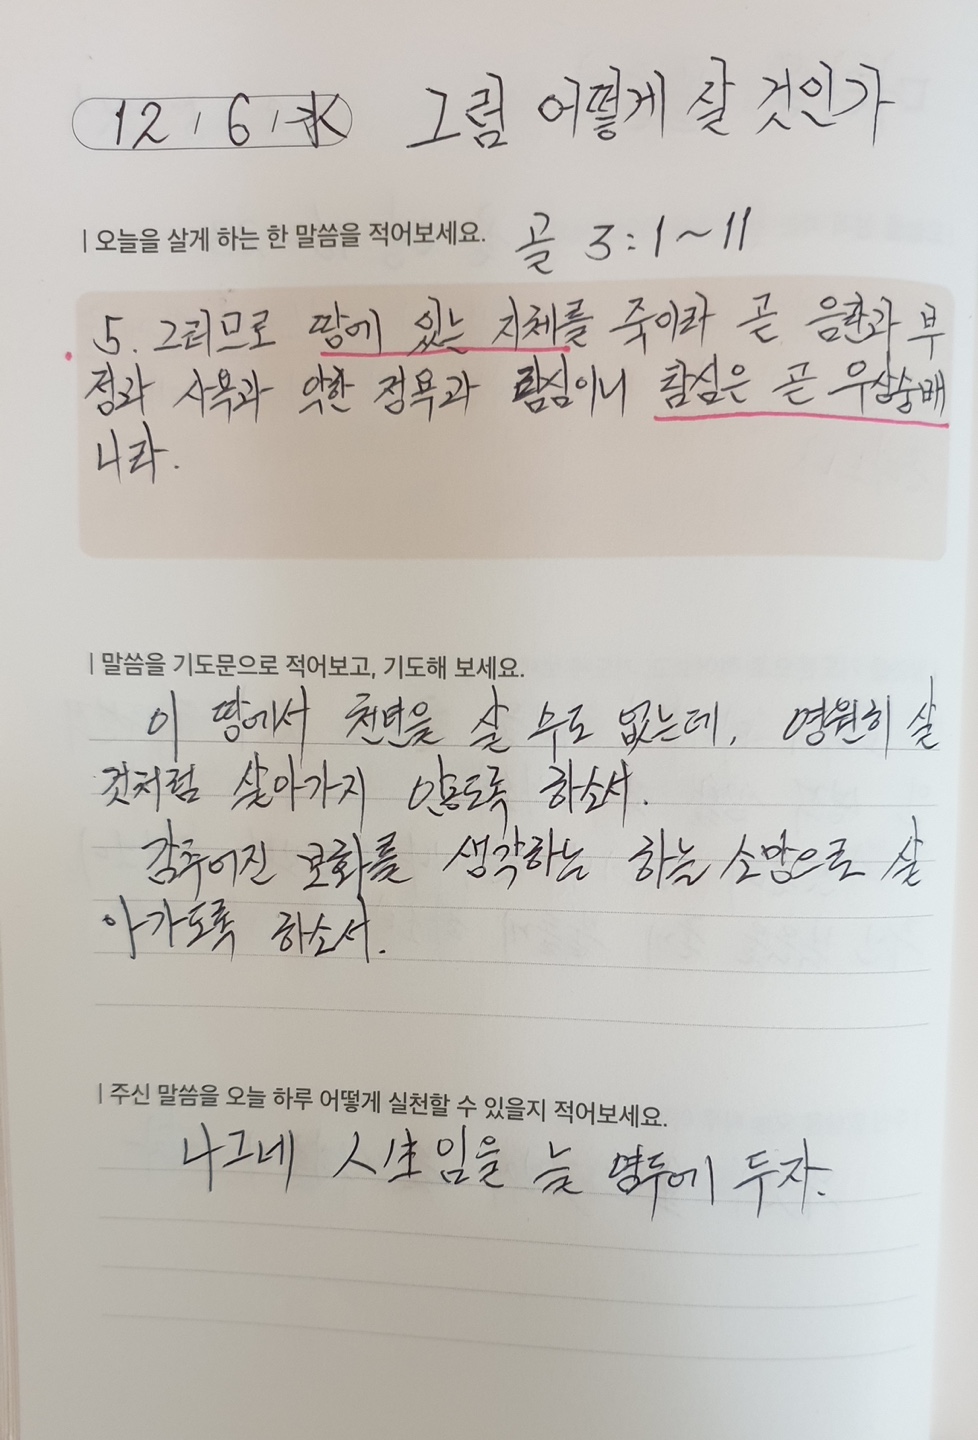 12, 6, 水 그럼 어떻게 살 것인가
| 오늘을 살게 하는 한 말씀을 적어보세요. 골 3:1~11
5. 그러므로 땅에 있는 지체를 죽이라 곧 음란과 부
정과 사욕과 악한 정욕과 탐심이니 탐심은 곧 우상숭배
니라.
| 말씀을 기도문으로 적어보고, 기도해 보세요.
이 땅에서 천년을 살 수도 없는데, 영원히 살
것처럼 살아가지 않도록 하소서.
감추어진 보화를 생각하는 하늘 소망으로 살
아가도록 하소서.
| 주신 말씀을 오늘 하루 어떻게 실천할 수 있을지 적어보세요.
나그네 人生임을 늘 염두에 두자.